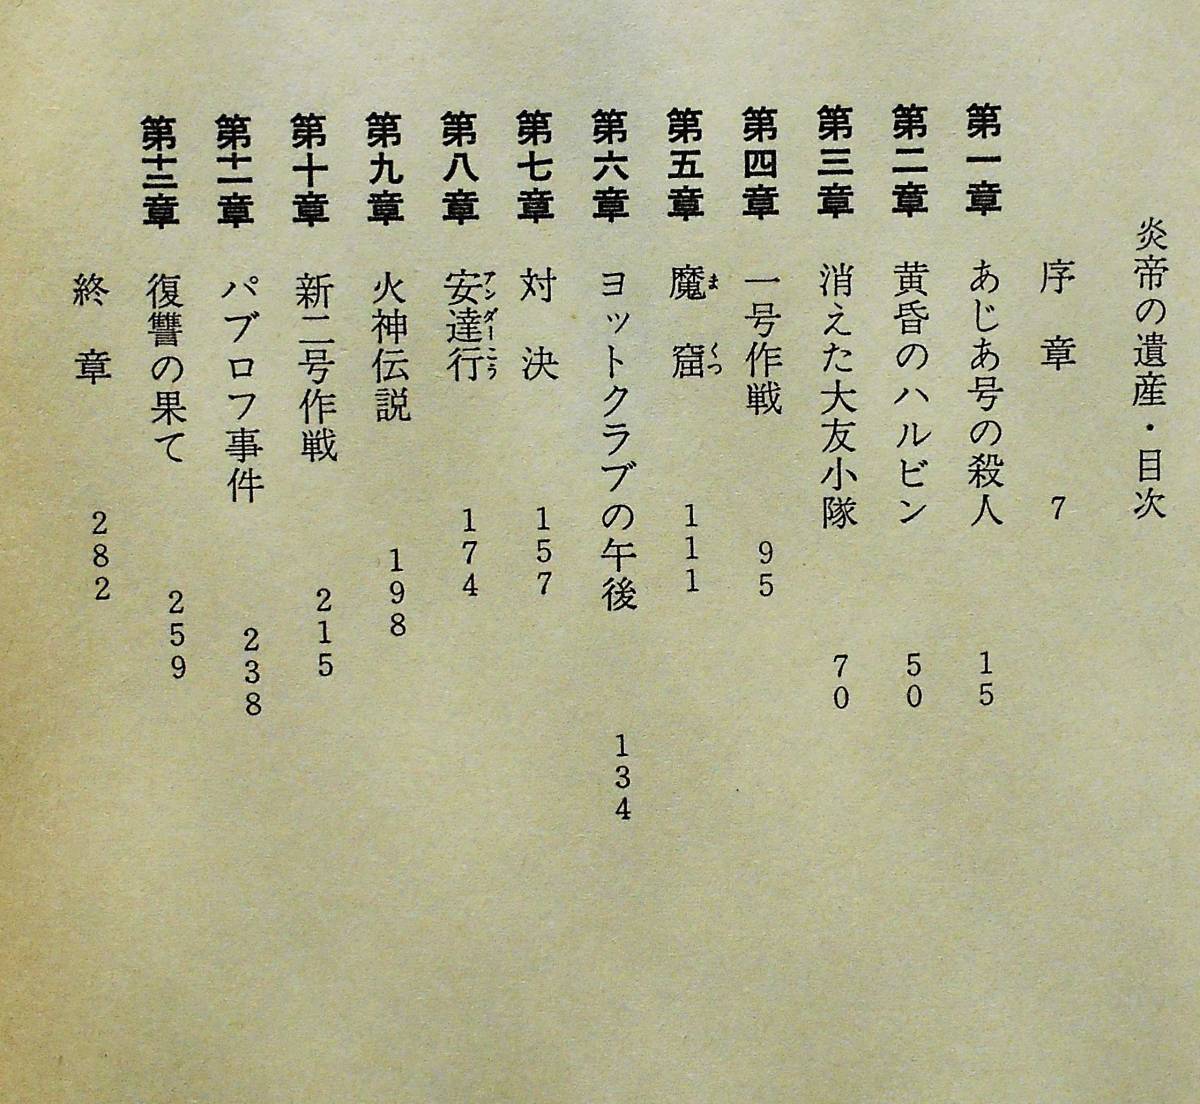 炎帝の遺産・目次
序章 7
第一章 あじあ号の殺人 15
第二章 黄昏のハルビン 50
第三章 消えた大友小隊 70
第四章 一号作戦 95
第五章 魔窟 まくつ 111
第六章 ヨットクラブの午後 134
第七章 対決 157
第八章 安達行 アンダーこう 174
第九章 火神伝説 198
第十章 新二号作戦 215
第十一章 パブロフ事件 238
第十二章 復讐の果て 259
終章 282